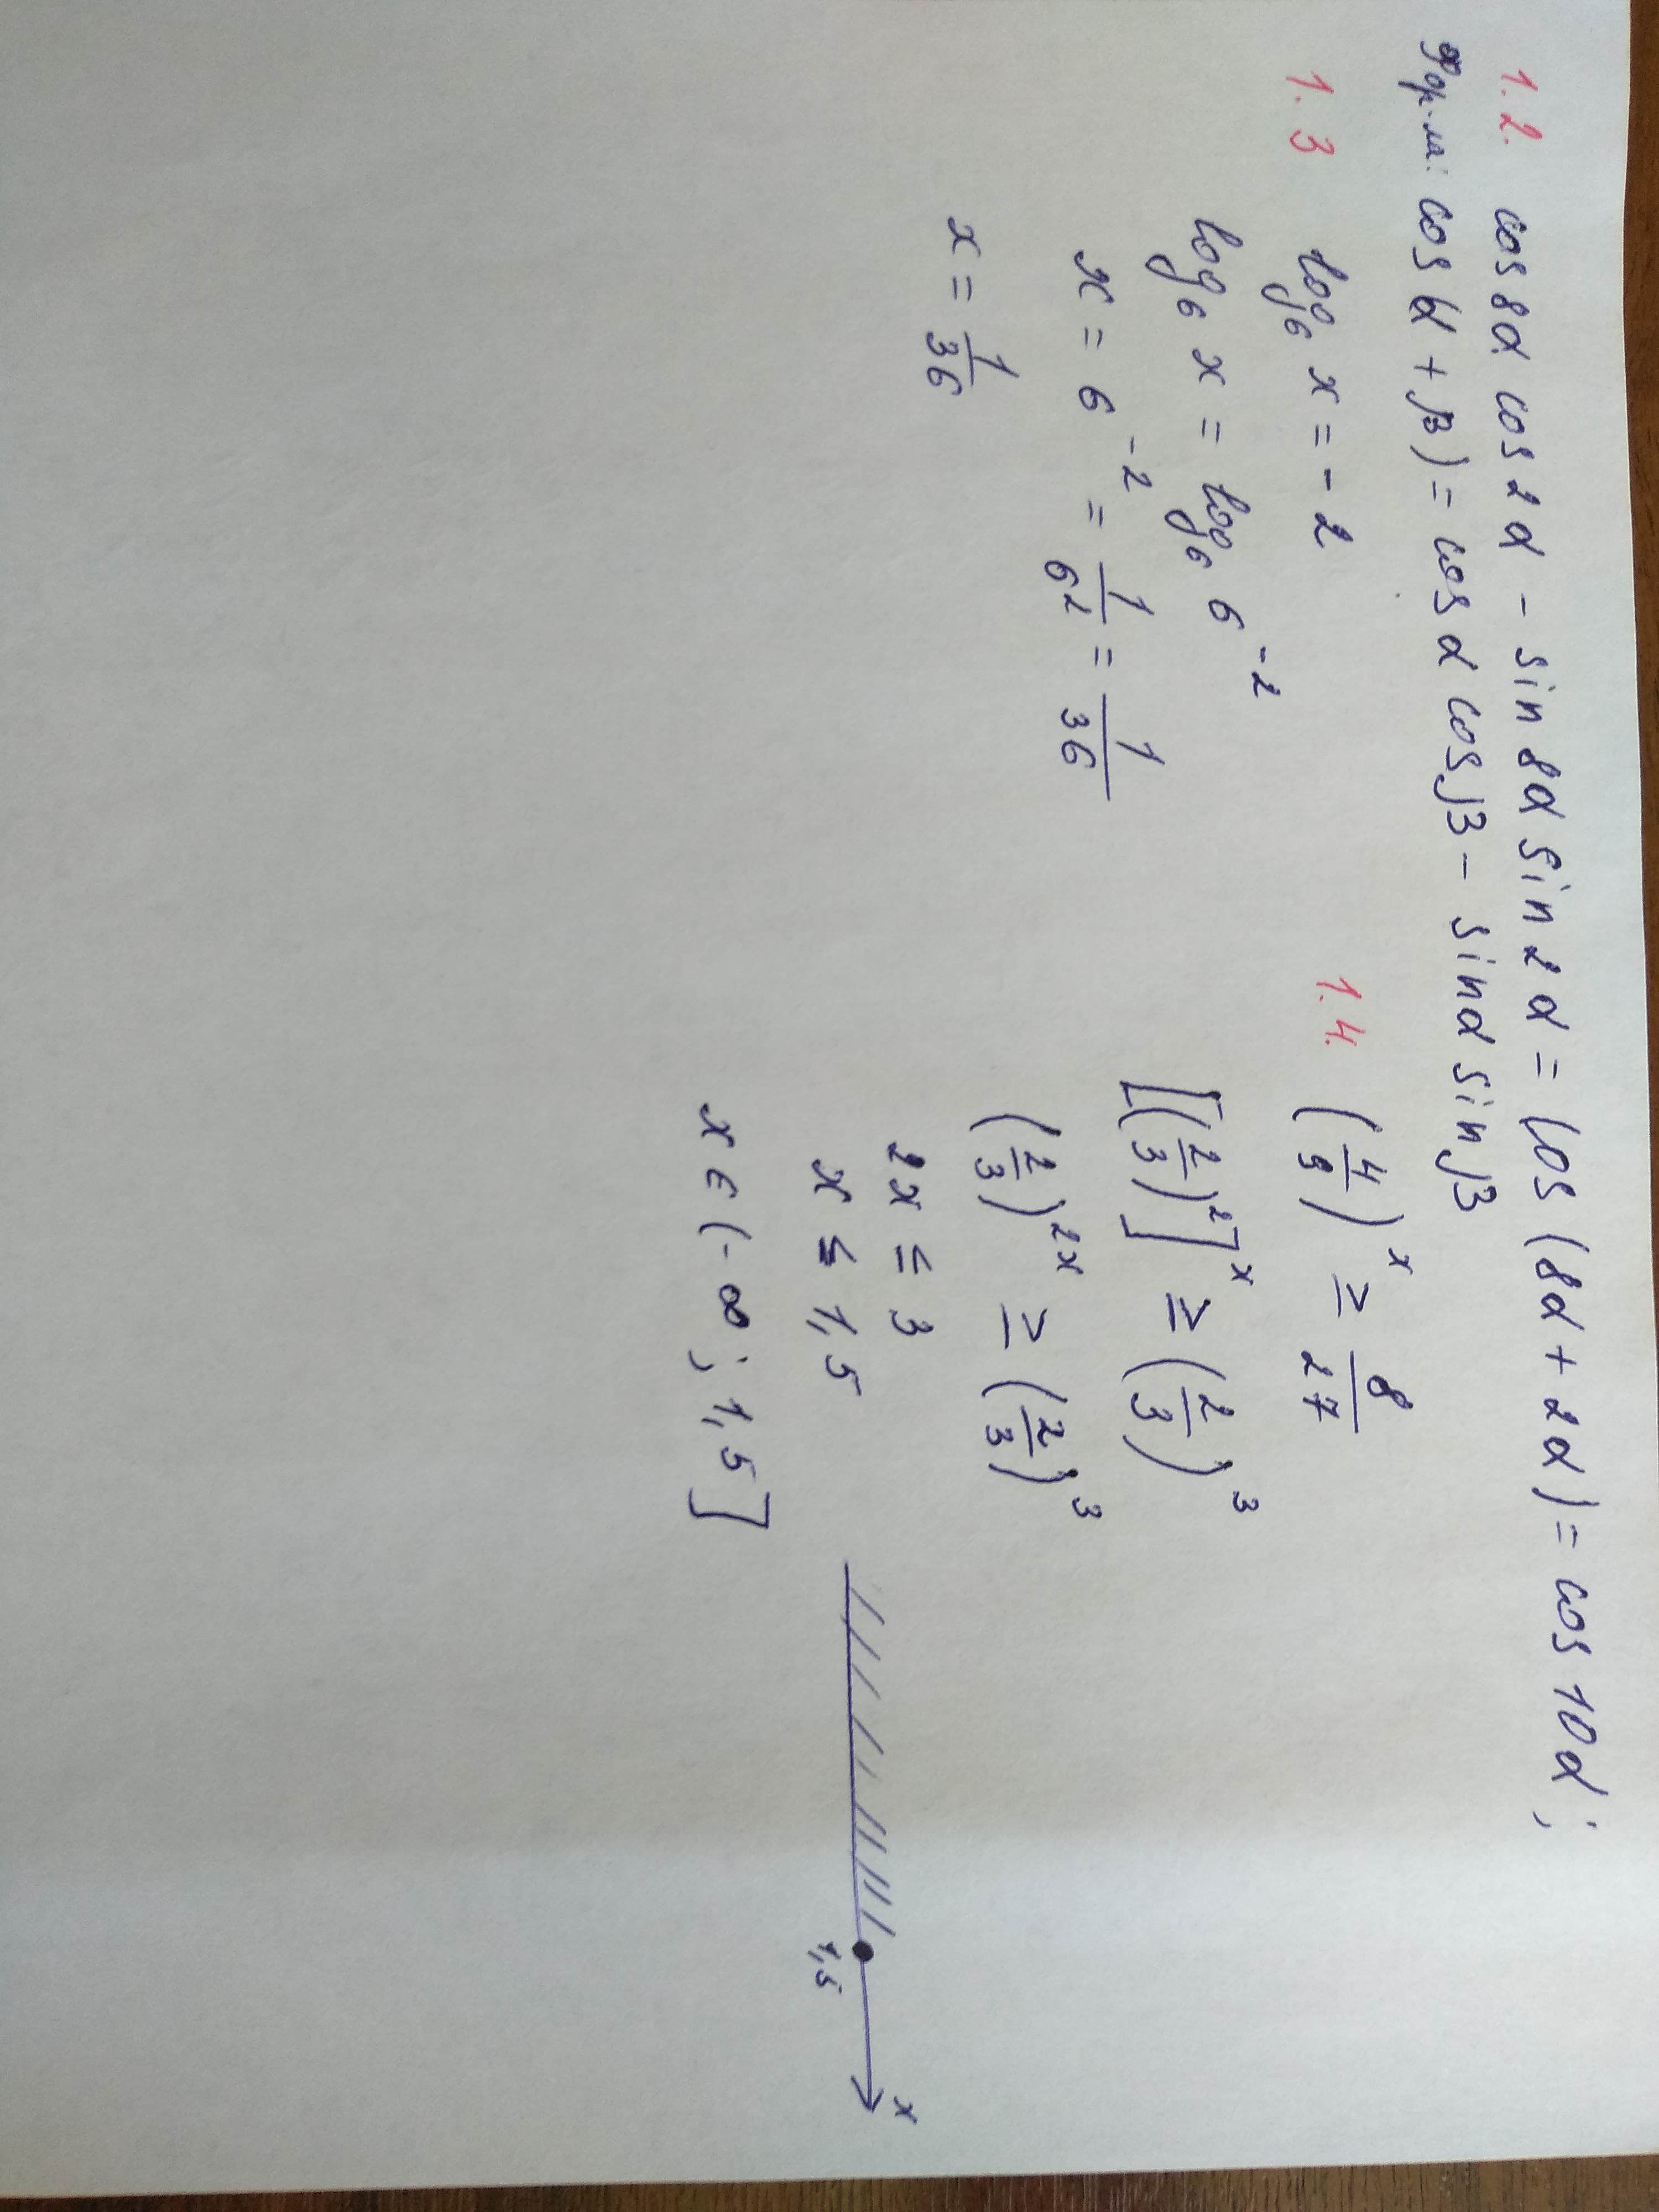 1.2. cos 8α cos 2α - sin 8α sin 2α = cos (8α + 2α) = cos 10α;
Фор-ла: cos (α + β) = cos α cos β - sin α sin β
1.3 log₆ x = -2
log₆ x = log₆ 6⁻²
x = 6⁻² = 1/6² = 1/36
x = 1/36
1.4. (4/9)ˣ ≥ 8/27
[(2/3)²]ˣ ≥ (2/3)³
(2/3)²ˣ ≥ (2/3)³
2x ≤ 3
x ≤ 1,5
x ∈ (-∞; 1,5]
1,5
x